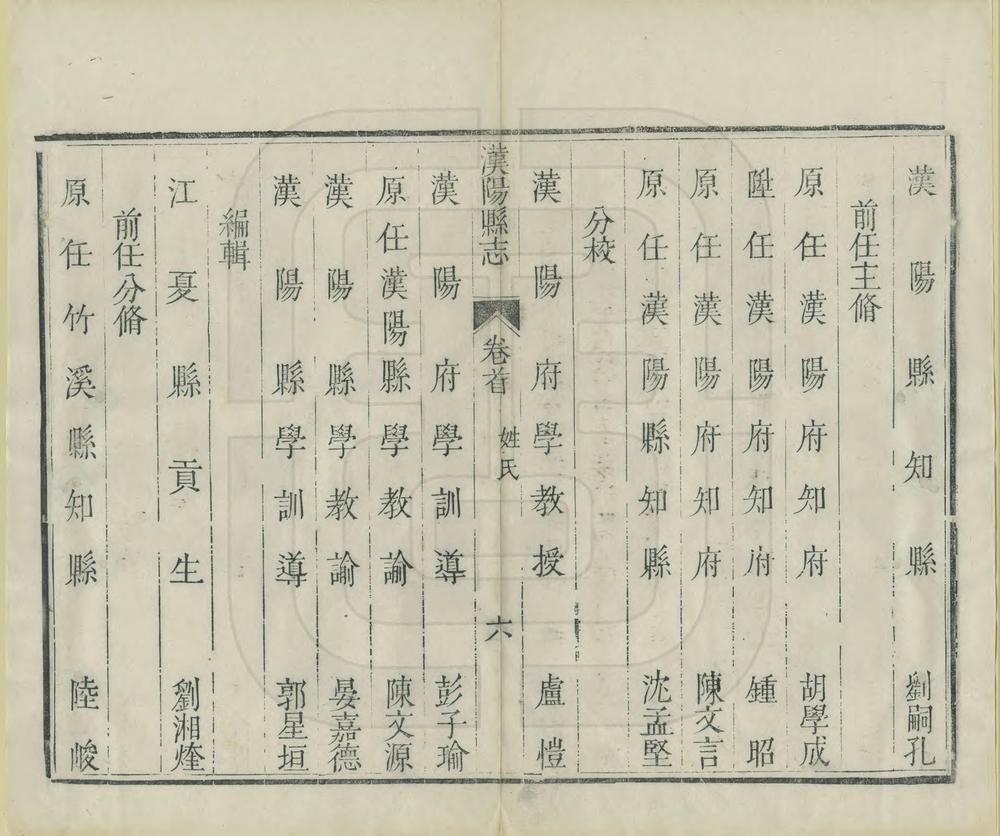 漢陽縣知縣 劉嗣孔
前任主脩
原任漢陽府知府 胡學成
陞任漢陽府知府 鍾昭
原任漢陽府知府 陳文言
原任漢陽縣知縣 沈孟堅
分校
漢陽府學教授 盧愷
漢陽縣志 卷首 姓氏 六
漢陽府學訓導 彭子瑜
原任漢陽縣學教諭 陳文源
漢陽縣學教諭 晏嘉德
漢陽縣學訓導 郭星垣
編輯
江夏縣貢生 劉湘煃
前任分脩
原任竹溪縣知縣 陸峻